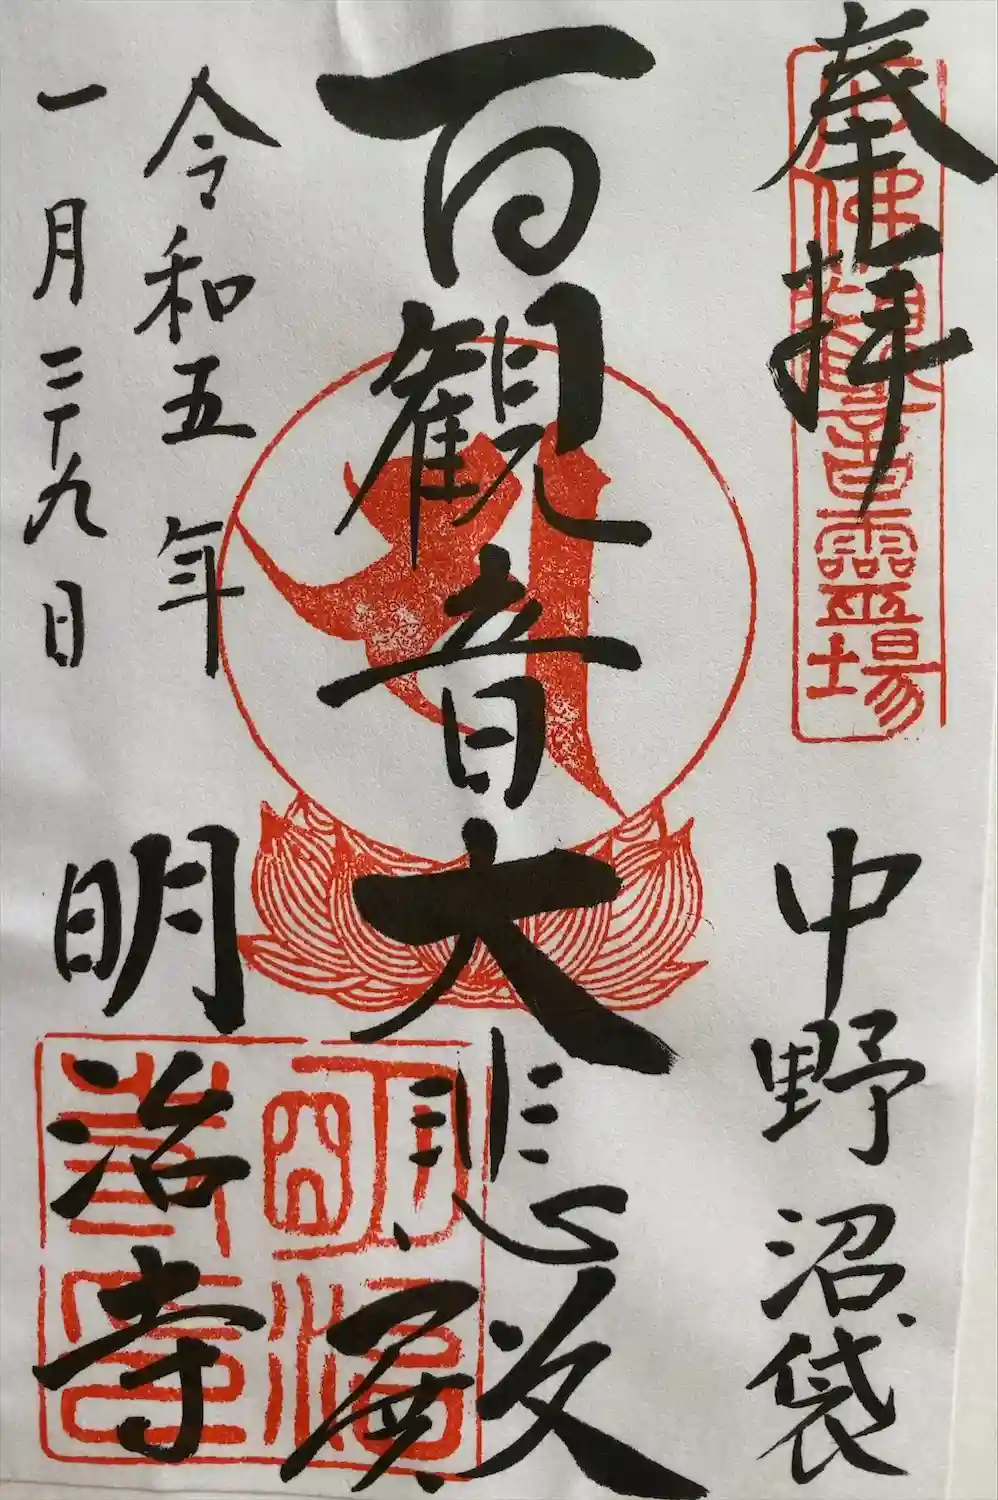 奉拝
中野沼袋
百観音大悲殿
令和五年
一月二十九日
明治寺